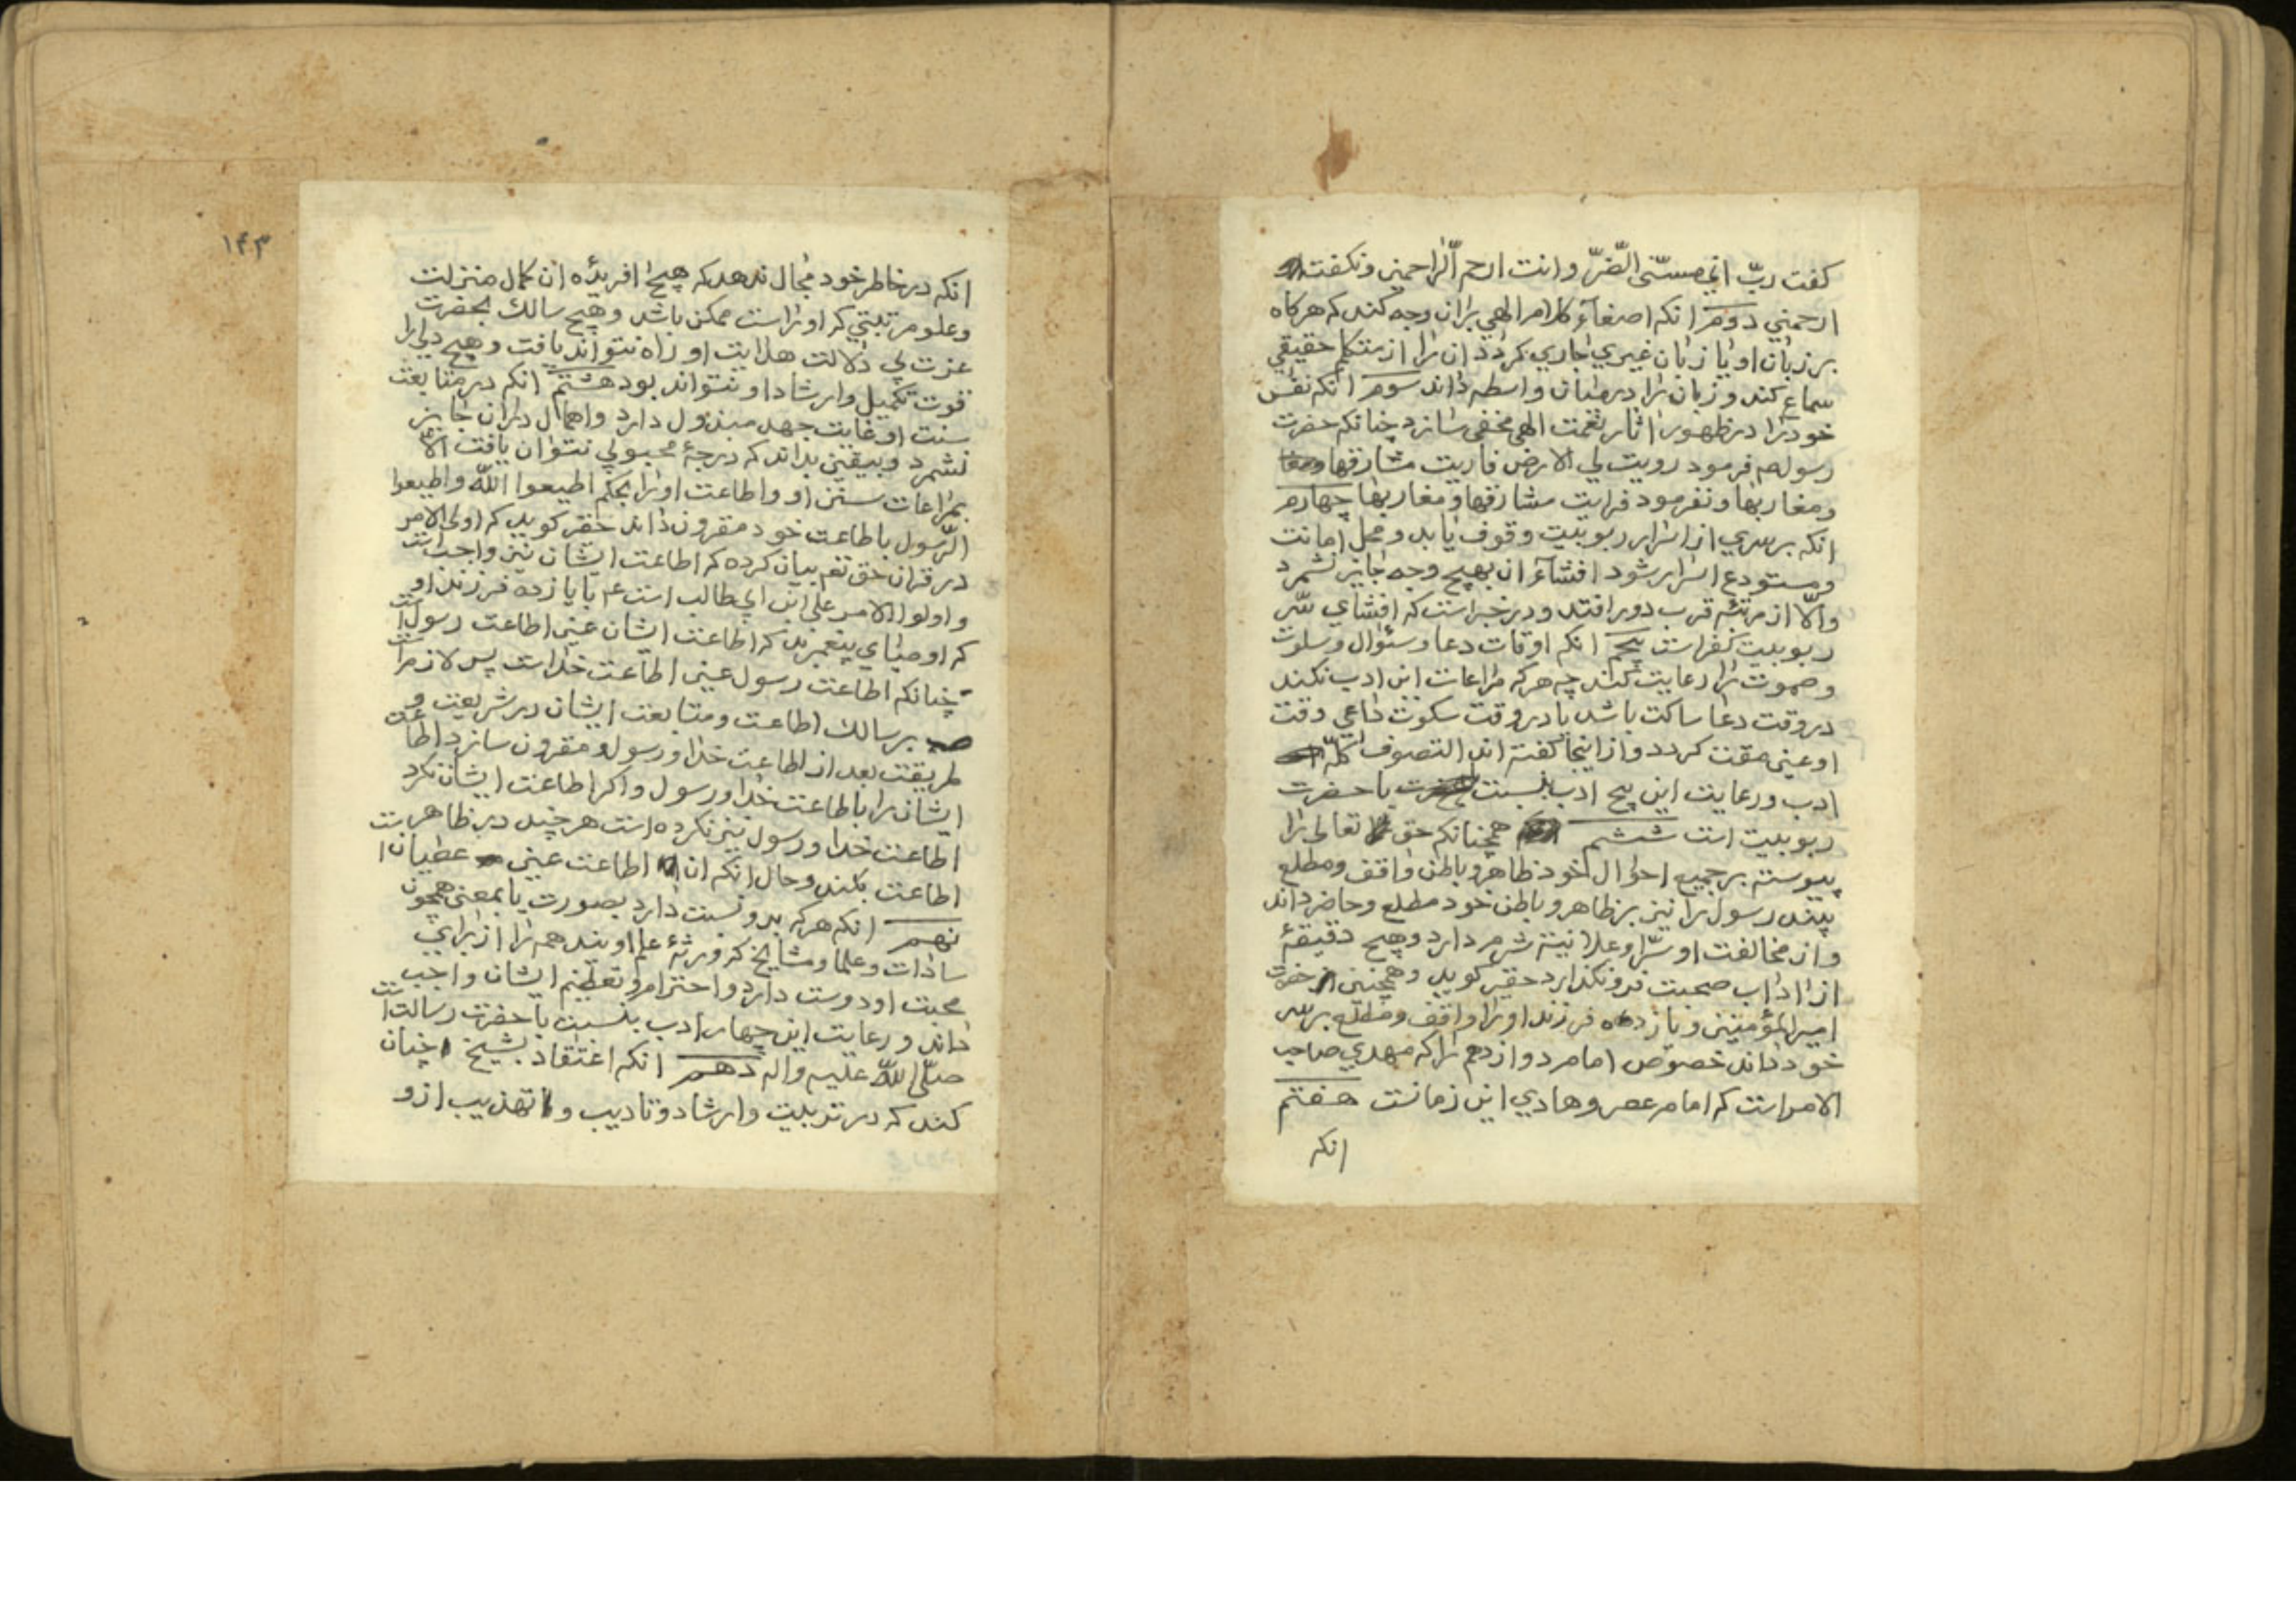 کفت ربّ انی مسنّی الضّرّ و انت ارحم الرّاحمین و نکفت
ارحمنی دوم انکه اصغآء کلام الهی بران وجه کند که هرکاه
بر زبان او یا زبان غیری جاری کردد ان را از متکلم حقیقی
سماع کند و زبان را در میان واسطه داند سوم انکه نفس
خود را در ظهور اثار نعمت الهی مخفی سازد چنانکه حضرت
رسول صم فرمود رویت لی الارض فاریت مشارقها
و مغاربها و نفرمود فرایت مشارقها و مغاربها چهارم
انکه بر سری از اسرار ربوبیت وقوف یابد و محل امانت
و مستودع اسرار شود افشآء ان بهیچ وجه جایز نشمرد
والّا از مرتبه قرب دور افتد و در خبر است که افشای سّر
ربوبیت کفر است پنجم انکه اوقات دعا و سئوال و سکوت
و صموت را رعایت کند چه هرکه مراعات این ادب نکند
در وقت دعا ساکت باشد یا در وقت سکوت داعی وقت
او عین مقت کردد و از اینجا کفته اند التصوف کلّه
ادب و رعایت این پنج ادب بنسبت با حضرت
ربوبیت است ششم همچنانکه حق تعالی را
پیوسته بر جمیع احوال خود ظاهر و باطن واقف و مطلع
بیند رسول را نیز بر ظاهر و باطن خود مطلع و حاضر داند
و از مخالفت او سّرا و علانیته شرم دارد و هیچ دقیقهٔ
از اداب صحبت فرو نکذارد حقیر کوید و همچنین حضرت
امیرالمؤمنین و یازده فرزند او را واقف و مطلع بر سر
خود داند خصوص امام دوازدهم را که مهدی صاحب
الامر است که امام عصر و هادی این زمانست هفتم
انکه
۱۴۳
انکه در خاطر خود مجال ندهد که هیچ افریدٔه ان کمال منزلت
و علو مرتبتی که او راست ممکن باشد و هیچ سالک بحضرت
عزت بی دلالت هدایت او راه نتواند یافت و هیچ ولی را
قوت تکمیل و ارشاد او نتواند بود هشتم انکه در متابعت
سنت او غایت جهد مبذول دارد و اهمال دران جایز
نشمرد و بیقین بداند که درجهٔ محبوبی نتوان یافت الّا
بمراعات سنن او و اطاعت او را بحکم اطیعوا اللّه و اطیعوا
الرّسول باطاعت خود مقرون داند حقیر کوید که اولی الامر
در قران حق تعم بیان کرده که اطاعت ایشان نیز واجبست
و اولوا الامر علی ابن ابی طالب است ع با یازده فرزند او
که اوصیای پیغمبرند که اطاعت ایشان عین اطاعت رسولست
چنانکه اطاعت رسول عین اطاعت خداست پس لازمست
بر سالک اطاعت و متابعت ایشان در شریعت و
طریقت بعد از اطاعت خدا و رسول و مقرون سازد اطاعت
ایشان را باطاعت خدا و رسول و اکر اطاعت ایشان نکرد
اطاعت خدا و رسول نیز نکرده است هر چند در ظاهر
اطاعت بکند و حال انکه ان اطاعت عین عصیان است
نهم انکه هرکه بدو نسبت دارد بصورت یا بمعنی همچون
سادات و علما و مشایخ که ورثهٔ علم او یند همه را از برای
محبت او دوست دارد و احترام و تعظیم ایشان واجب
داند و رعایت این چهار ادب بنسبت با حضرت رسالت است
صلّی اللّه علیه و اله دهم انکه اعتقاد بشیخ چنان
کند که در تربیت و ارشاد و تادیب و تهذیب از و